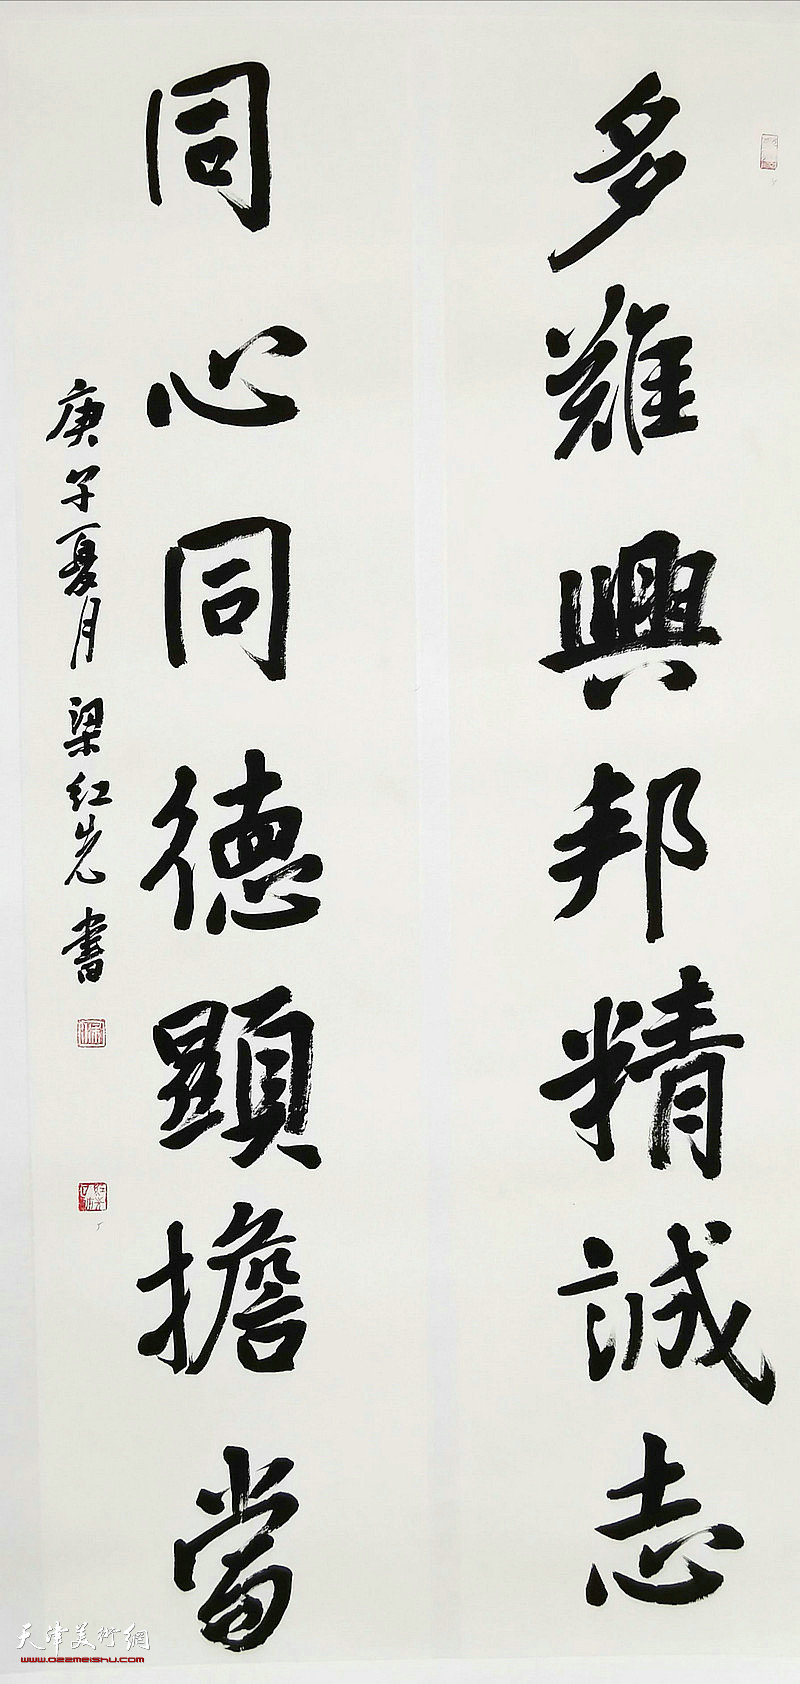 多難興邦精誠志
同心同德顯擔當
庚子夏月梁紅先書
天津美術網
www.022meishu.com